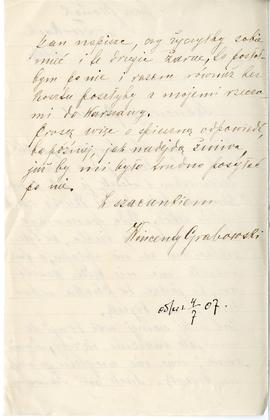 Pan napisze, czy życzyłby sobie
mieć i te drugie żarna, to posłał
bym po nie i razem również bez
kosztu posłałby z mojemi rzecza
mi do Warszawy.
Proszę więc o spieszną odpowiedź,
bo później, jak nadejdą żniwa,
już by mi było trudno posyłać
po nie.
Z szacunkiem
Wincenty Grabowski
4/7 07.